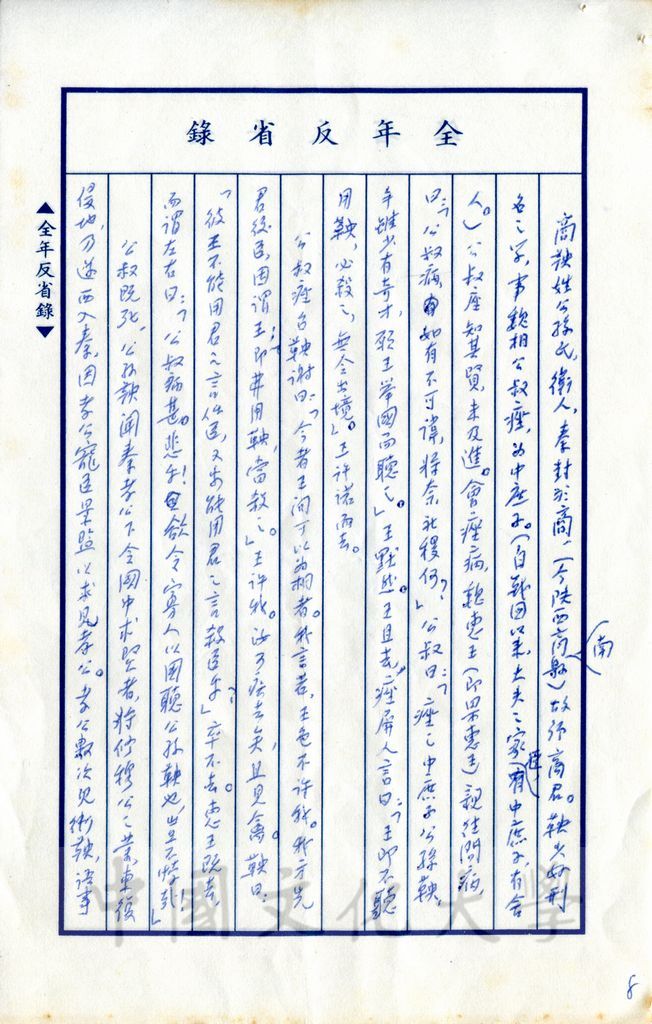 全年反省錄
商鞅姓公孫氏，衛人，秦封於商，（今陝西商縣南）故號商君。鞅少好刑
名之學，事魏相公叔痤，為中庶子。（自戰國以來，士大夫之家，有中庶子，有舍
人。）公叔座知其賢，未及進。會痤病，魏惠王（即梁惠王）親往問病，
曰：「公叔病，如有不可諱，將奈社稷何？」公叔曰：「痤之中庶子公孫鞅，
年雖少有奇才，願王舉國而聽之。」王默然。王且去，痤屏人言曰：「王即不聽
用鞅，必殺之，無令出境。」王許諾而去。
公叔痤召鞅謝曰：「今者王問可以為相者。我言若，王色不許我。我方先
君後臣，因謂王即弗用鞅，當殺之。」王許我。汝可疾去矣，且見禽。鞅曰：
「彼王不能用君之言任臣，又安能用君之言殺臣乎？」卒不去。惠王既去，
而謂左右曰：「公叔病甚。悲乎！欲令寡人以國聽公孫鞅也，豈不悖哉」
公叔既死，公孫鞅聞秦孝公下令國中求賢者，將修穆公之業，東復
侵地，乃遂西入秦，因孝公寵臣景監以求見孝公。孝公數次見衛鞅，語事
▲全年反省錄▼
中國文化大學
8